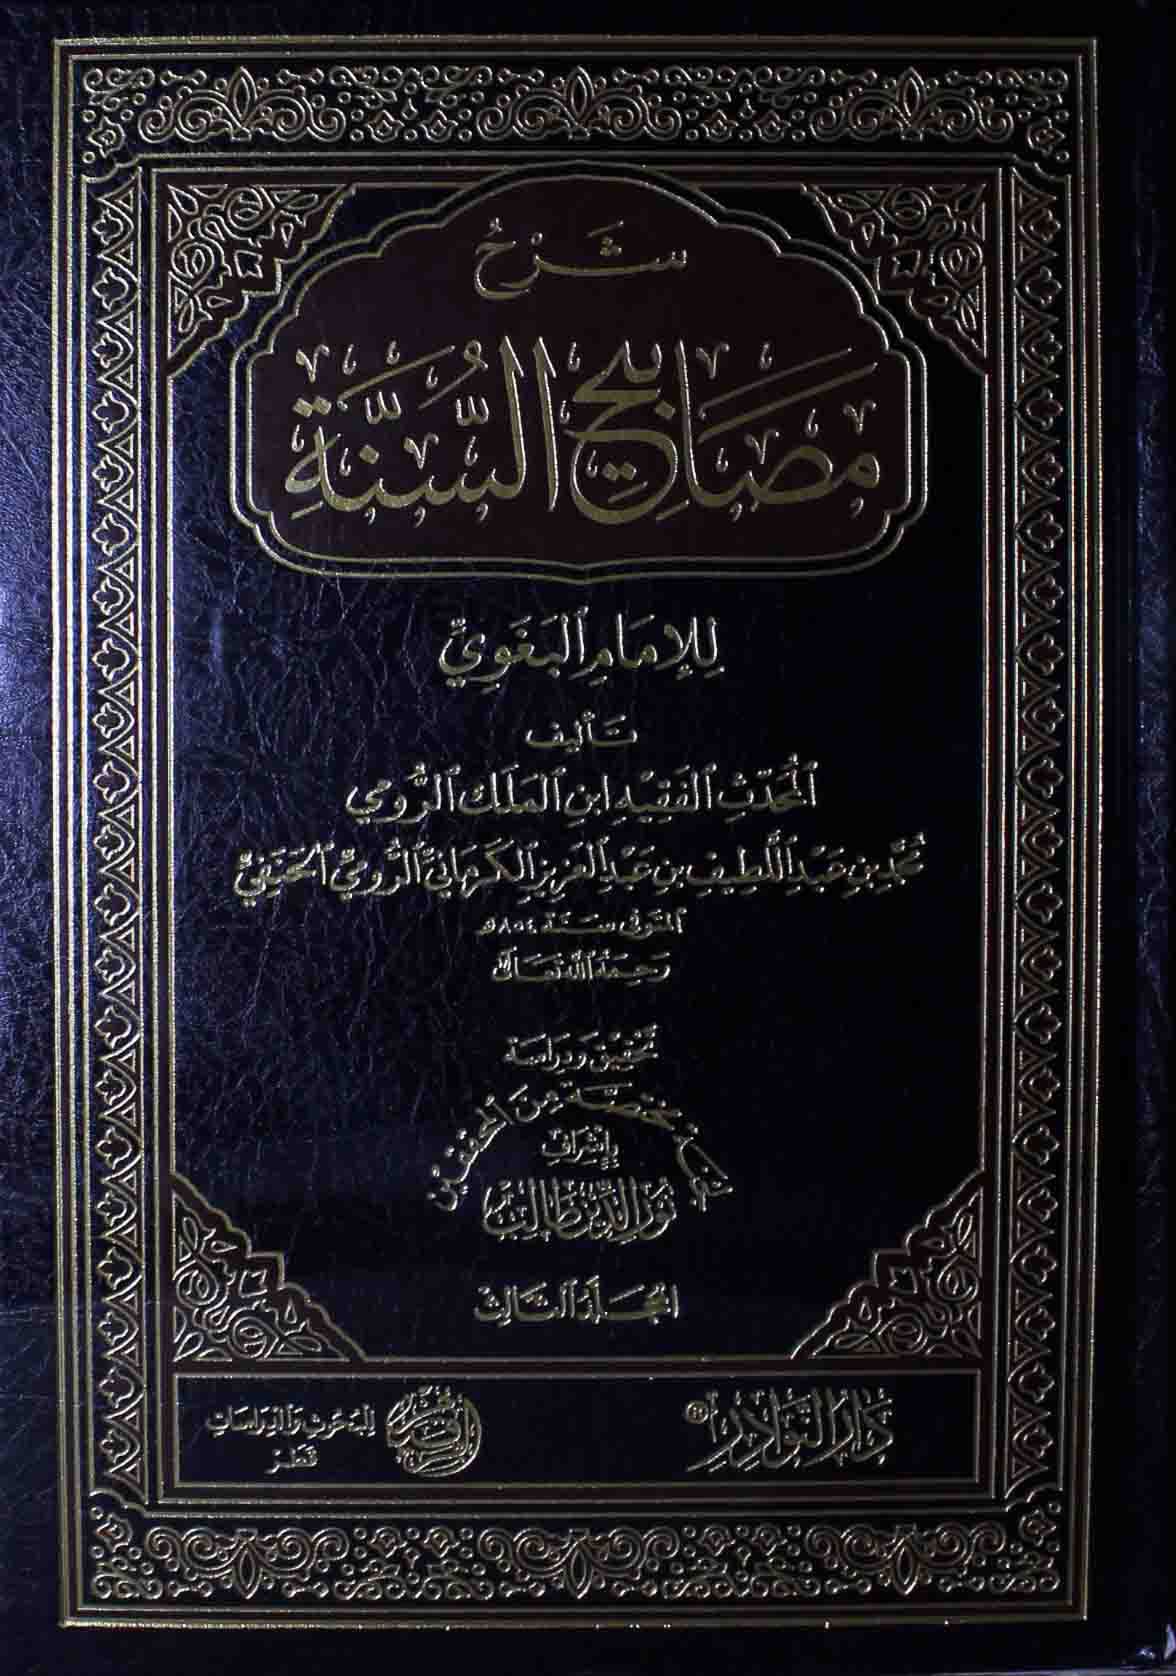 شَرْحُ
مَصَابِيحِ السُّنَّةِ
لِلإِمَامِ البَغَوِيِّ
تَأليف
المُحَدِّثِ الفَقِيهِ ابنِ المَلَكِ الرُّومِي
مُحَمَّدِ بنِ عَبْدِ اللَّطِيفِ بنِ عَبْدِ العَزِيزِ الكَرمَانِيِّ الرُّومِيِّ الحَنَفِيِّ
المتوفى سَنَة ٨٥٤ هـ
رَحِمَهُ الله تَعَالَى
تحقِيق وَدِرَاسَة
لجنَة مختصَّة مِنَ المحققين
بإشرَافِ
نُورُ الدِّين طَالِب
المجَلَّدُ الثَّالِث
دَارُ النَّوَادِر
لِلبُحُوثِ وَالدِّرَاسَاتِ
قَطَر